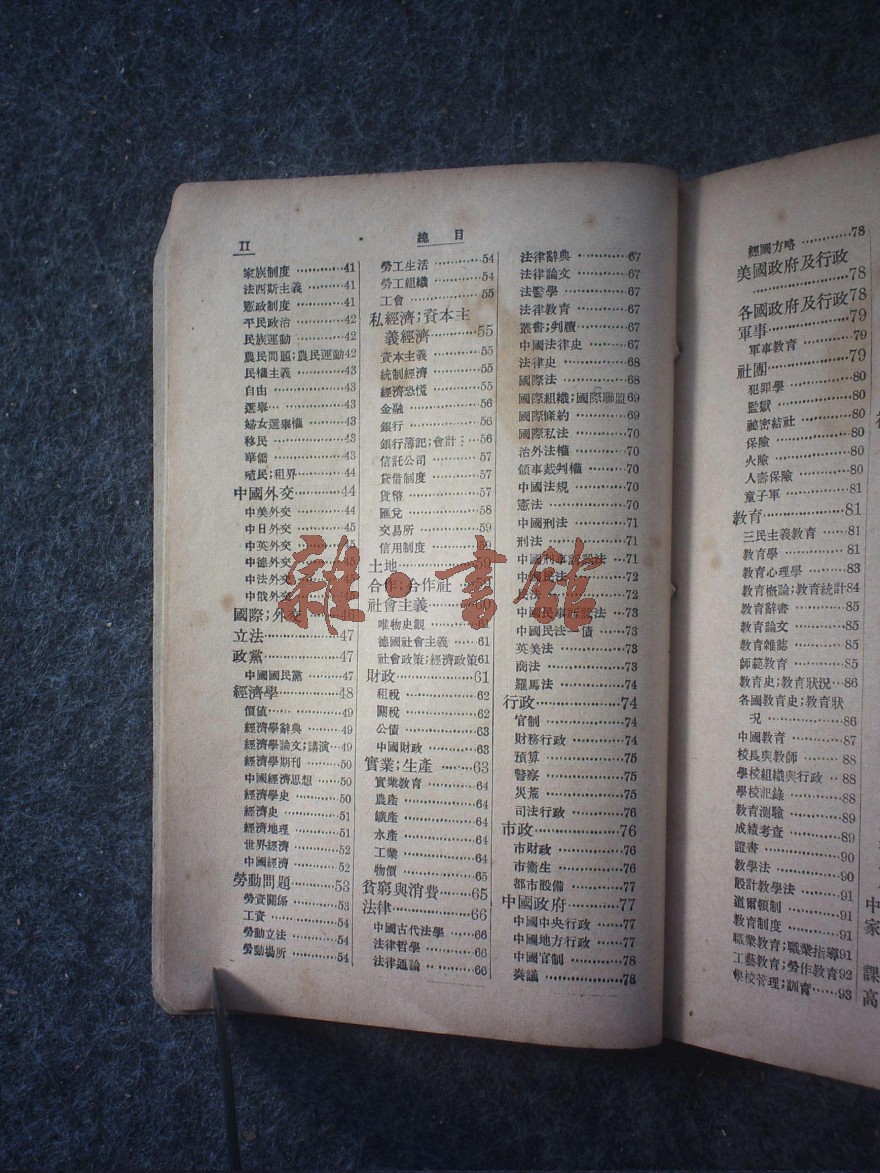 II
總目
家族制度 ············41
法西斯主義 ······41
憲政制度 ············41
平民政治 ············42
民族運動 ············42
農民問題;農民運動42
民權主義 ············43
自由 ··················43
選舉 ··················43
婦女選舉權 ······43
移民 ··················43
華僑 ··················43
殖民;租界 ·········44
中國外交 ·········44
中美外交 ·········44
中日外交 ·········45
中英外交 ·········45
中德外交
中法外交
中俄外交
國際;外交
立法 ··················47
政黨 ··················47
中國國民黨 ······47
經濟學 ············48
價值 ··················49
經濟學辭典 ······49
經濟學論文;講演 ··49
經濟學期刊 ······50
中國經濟思想 ···50
經濟學史 ·········50
經濟史 ············51
經濟地理 ·········51
世界經濟 ·········52
中國經濟 ·········52
勞動問題 ·········53
勞資關係 ·········53
工資 ··················54
勞動立法 ·········54
勞動場所 ·········54
勞工生活 ·········54
勞工組織 ·········54
工會 ··················55
私經濟;資本主
義經濟 ············55
資本主義 ·········55
統制經濟 ·········55
經濟恐慌 ·········55
金融 ··················56
銀行 ··················56
銀行簿記;會計 ···56
信託公司 ·········57
貸借制度 ·········57
貨幣 ··················57
匯兌 ··················58
交易所 ············59
信用制度 ·········59
土地 ··················59
合作;合作社
社會主義 ·········60
唯物史觀 ·········61
德國社會主義 ···61
社會政策;經濟政策61
財政 ··················61
租稅 ··················62
關稅 ··················62
公債 ··················63
中國財政 ·········63
實業;生產 ······63
實業教育 ·········64
農產 ··················64
鑛產 ··················64
水產 ··················64
工業 ··················64
物價 ··················65
貧窮與消費 ······65
法律 ··················66
中國古代法學 ···66
法律哲學 ·········66
法律通論 ·········66
法律辭典 ·········67
法律論文 ·········67
法醫學 ············67
法律教育 ·········67
叢書;判牘 ·········67
中國法律史 ······67
法律史 ············68
國際法 ············68
國際組織;國際聯盟69
國際條約 ·········69
國際私法 ·········70
治外法權 ·········70
領事裁判權 ······70
中國法規 ·········70
憲法 ··················70
中國刑法 ·········71
刑法 ··················71
中國刑事訴訟法 ···71
中國民法 ·········72
民法 ··················72
中國民事訴訟法 ···73
中國民法—債 ······73
英美法 ············73
商法 ··················73
羅馬法 ············74
行政 ··················74
官制 ··················74
財務行政 ·········74
預算 ··················75
警察 ··················75
災荒 ··················75
司法行政 ·········76
市政 ··················76
市財政 ············76
市衞生 ············76
都市設備 ·········77
中國政府 ·········77
中國中央行政 ···77
中國地方行政 ···77
中國官制 ·········78
奏議 ··················78
經國方略 ·········78
美國政府及行政
··················78
各國政府及行政78
軍事 ··················79
軍事教育 ·········79
社團 ··················79
犯罪學 ············80
監獄 ··················80
祕密結社 ·········80
保險 ··················80
火險 ··················80
人壽保險 ·········80
童子軍 ············81
教育 ··················81
三民主義教育 ···81
教育學 ············81
教育心理學 ······83
教育概論;教育統計84
教育辭書 ·········85
教育論文 ·········85
教育雜誌 ·········85
師範教育 ·········85
教育史;教育狀況 ··86
各國教育史;教育狀
況 ··················86
中國教育 ·········87
校長與教師 ······88
學校組織與行政 ··88
學校記錄 ·········88
教育測驗 ·········89
成績考查 ·········89
證書 ··················90
教學法 ············90
設計教學法 ······91
道爾頓制 ·········91
教育制度 ·········91
職業教育;職業指導91
工藝教育;勞作教育92
學校管理;訓育 ······93
中
家
課
高
雜·書館